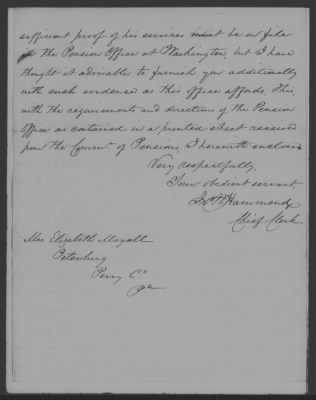 sufficient proof of her services must be on file
in the Pension Office at Washington, but I have
thought it advisable to furnish you additionally
with such evidence as this office affords. This,
with the requirements and directions of the Pension
Office as contained in a printed sheet received
from the Commr. of Pensions, I herewith enclose.
Very respectfully,
Your obedient servant
Hammond
Chief Clerk
Mrs Elizabeth Magall
Petersburg
Perry Co
Pa